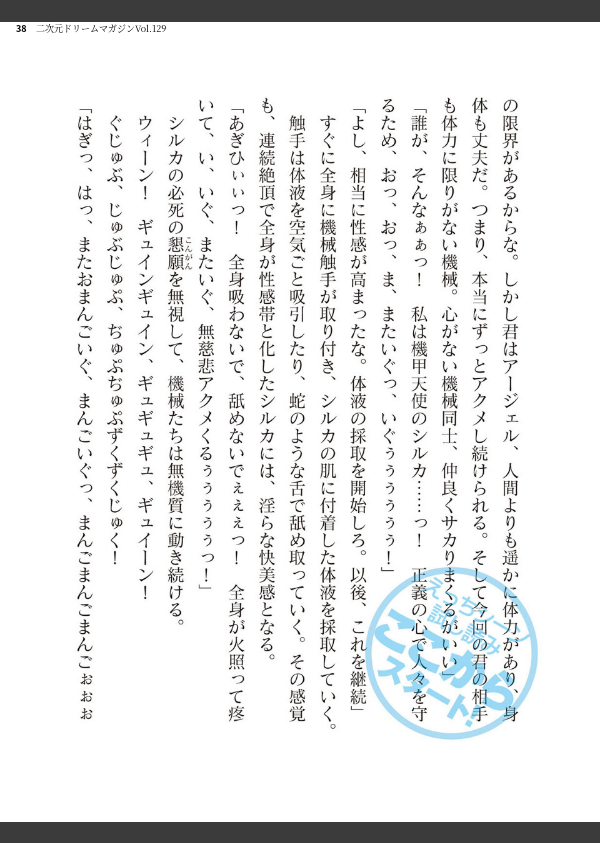 38 二次元ドリームマガジンVol.129
の限界があるからな。しかし君はアージェル、人間よりも遥かに体力があり、身
体も丈夫だ。つまり、本当にずっとアクメし続けられる。そして今回の君の相手
も体力に限りがない機械。心がない機械同士、仲良くサカりまくるがいい」
「誰が、そんなぁぁっ！　私は機甲天使のシルカ……っ！　正義の心で人々を守
るため、おっ、おっ、ま、またいぐっ、いぐぅぅぅぅぅ！」
「よし、相当に性感が高まったな。体液の採取を開始しろ。以後、これを継続」
すぐに全身に機械触手が取り付き、シルカの肌に付着した体液を採取していく。
触手は体液を空気ごと吸引したり、蛇のような舌で舐め取っていく。その感覚
も、連続絶頂で全身が性感帯と化したシルカには、淫らな快美感となる。
「あぎひぃぃっ！　全身吸わないで、舐めないでぇぇぇっ！　全身が火照って疼
いて、い、いぐ、またいぐ、無慈悲アクメくるぅぅぅぅぅっ！」
シルカの必死の懇願を無視して、機械たちは無機質に動き続ける。
こんがん
ウィーン！　ギュインギュイン、ギュギュギュ、ギュイーン！
ぐじゅぶ、じゅぶじゅぷ、ぢゅぷぢゅぷずくずくじゅく！
「はぎっ、はっ、またおまんごいぐ、まんごいぐっ、まんごまんごまんごぉぉぉ
えっちシーン
試し読み
ここから
スタート！